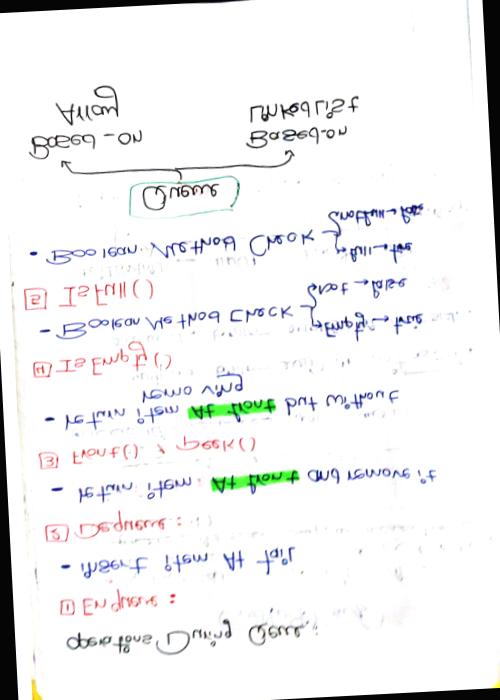 operations During Queue:
1 Enqueue :
- insert item At tail
2 Dequeue :
- return item At front and remove it
3 Front() , peek()
- return item At front but without
removing
4 IsEmpty()
- Boolean Method Check Empty → true
not → false
5 IsFull()
- Boolean Method Check full → true
notfull → false
Queue
Based-on Based-on
Array LinkedList